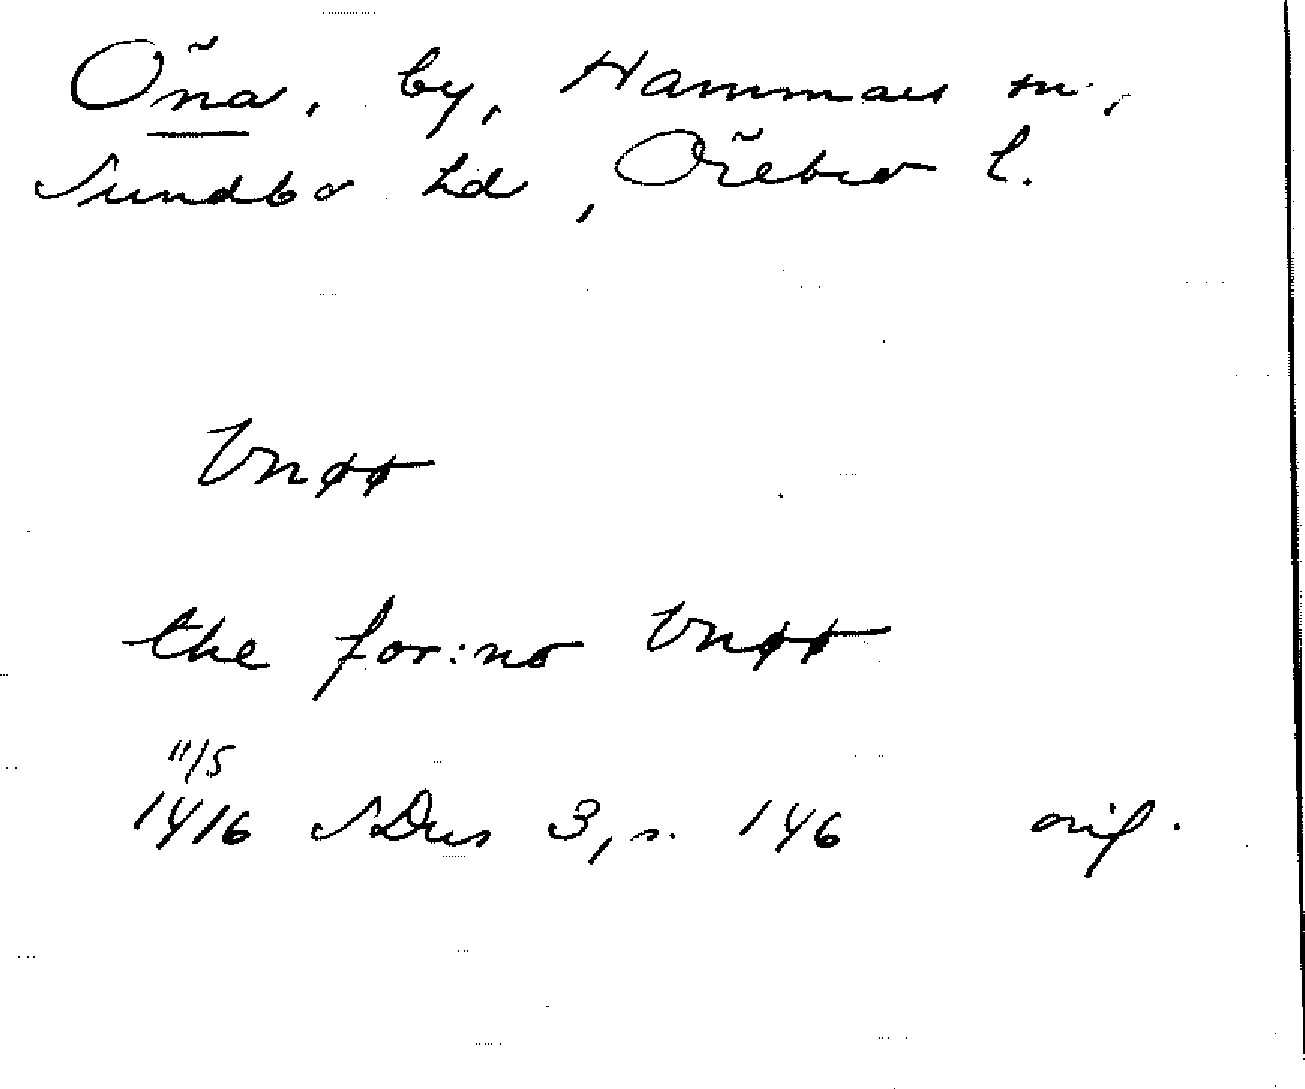 Öna, by, Hammars sn.,
Sundbo hd, Örebro l.
Vnøø
the for:no Vnøø
11/5
1416 SDns 3, s. 146 orig.